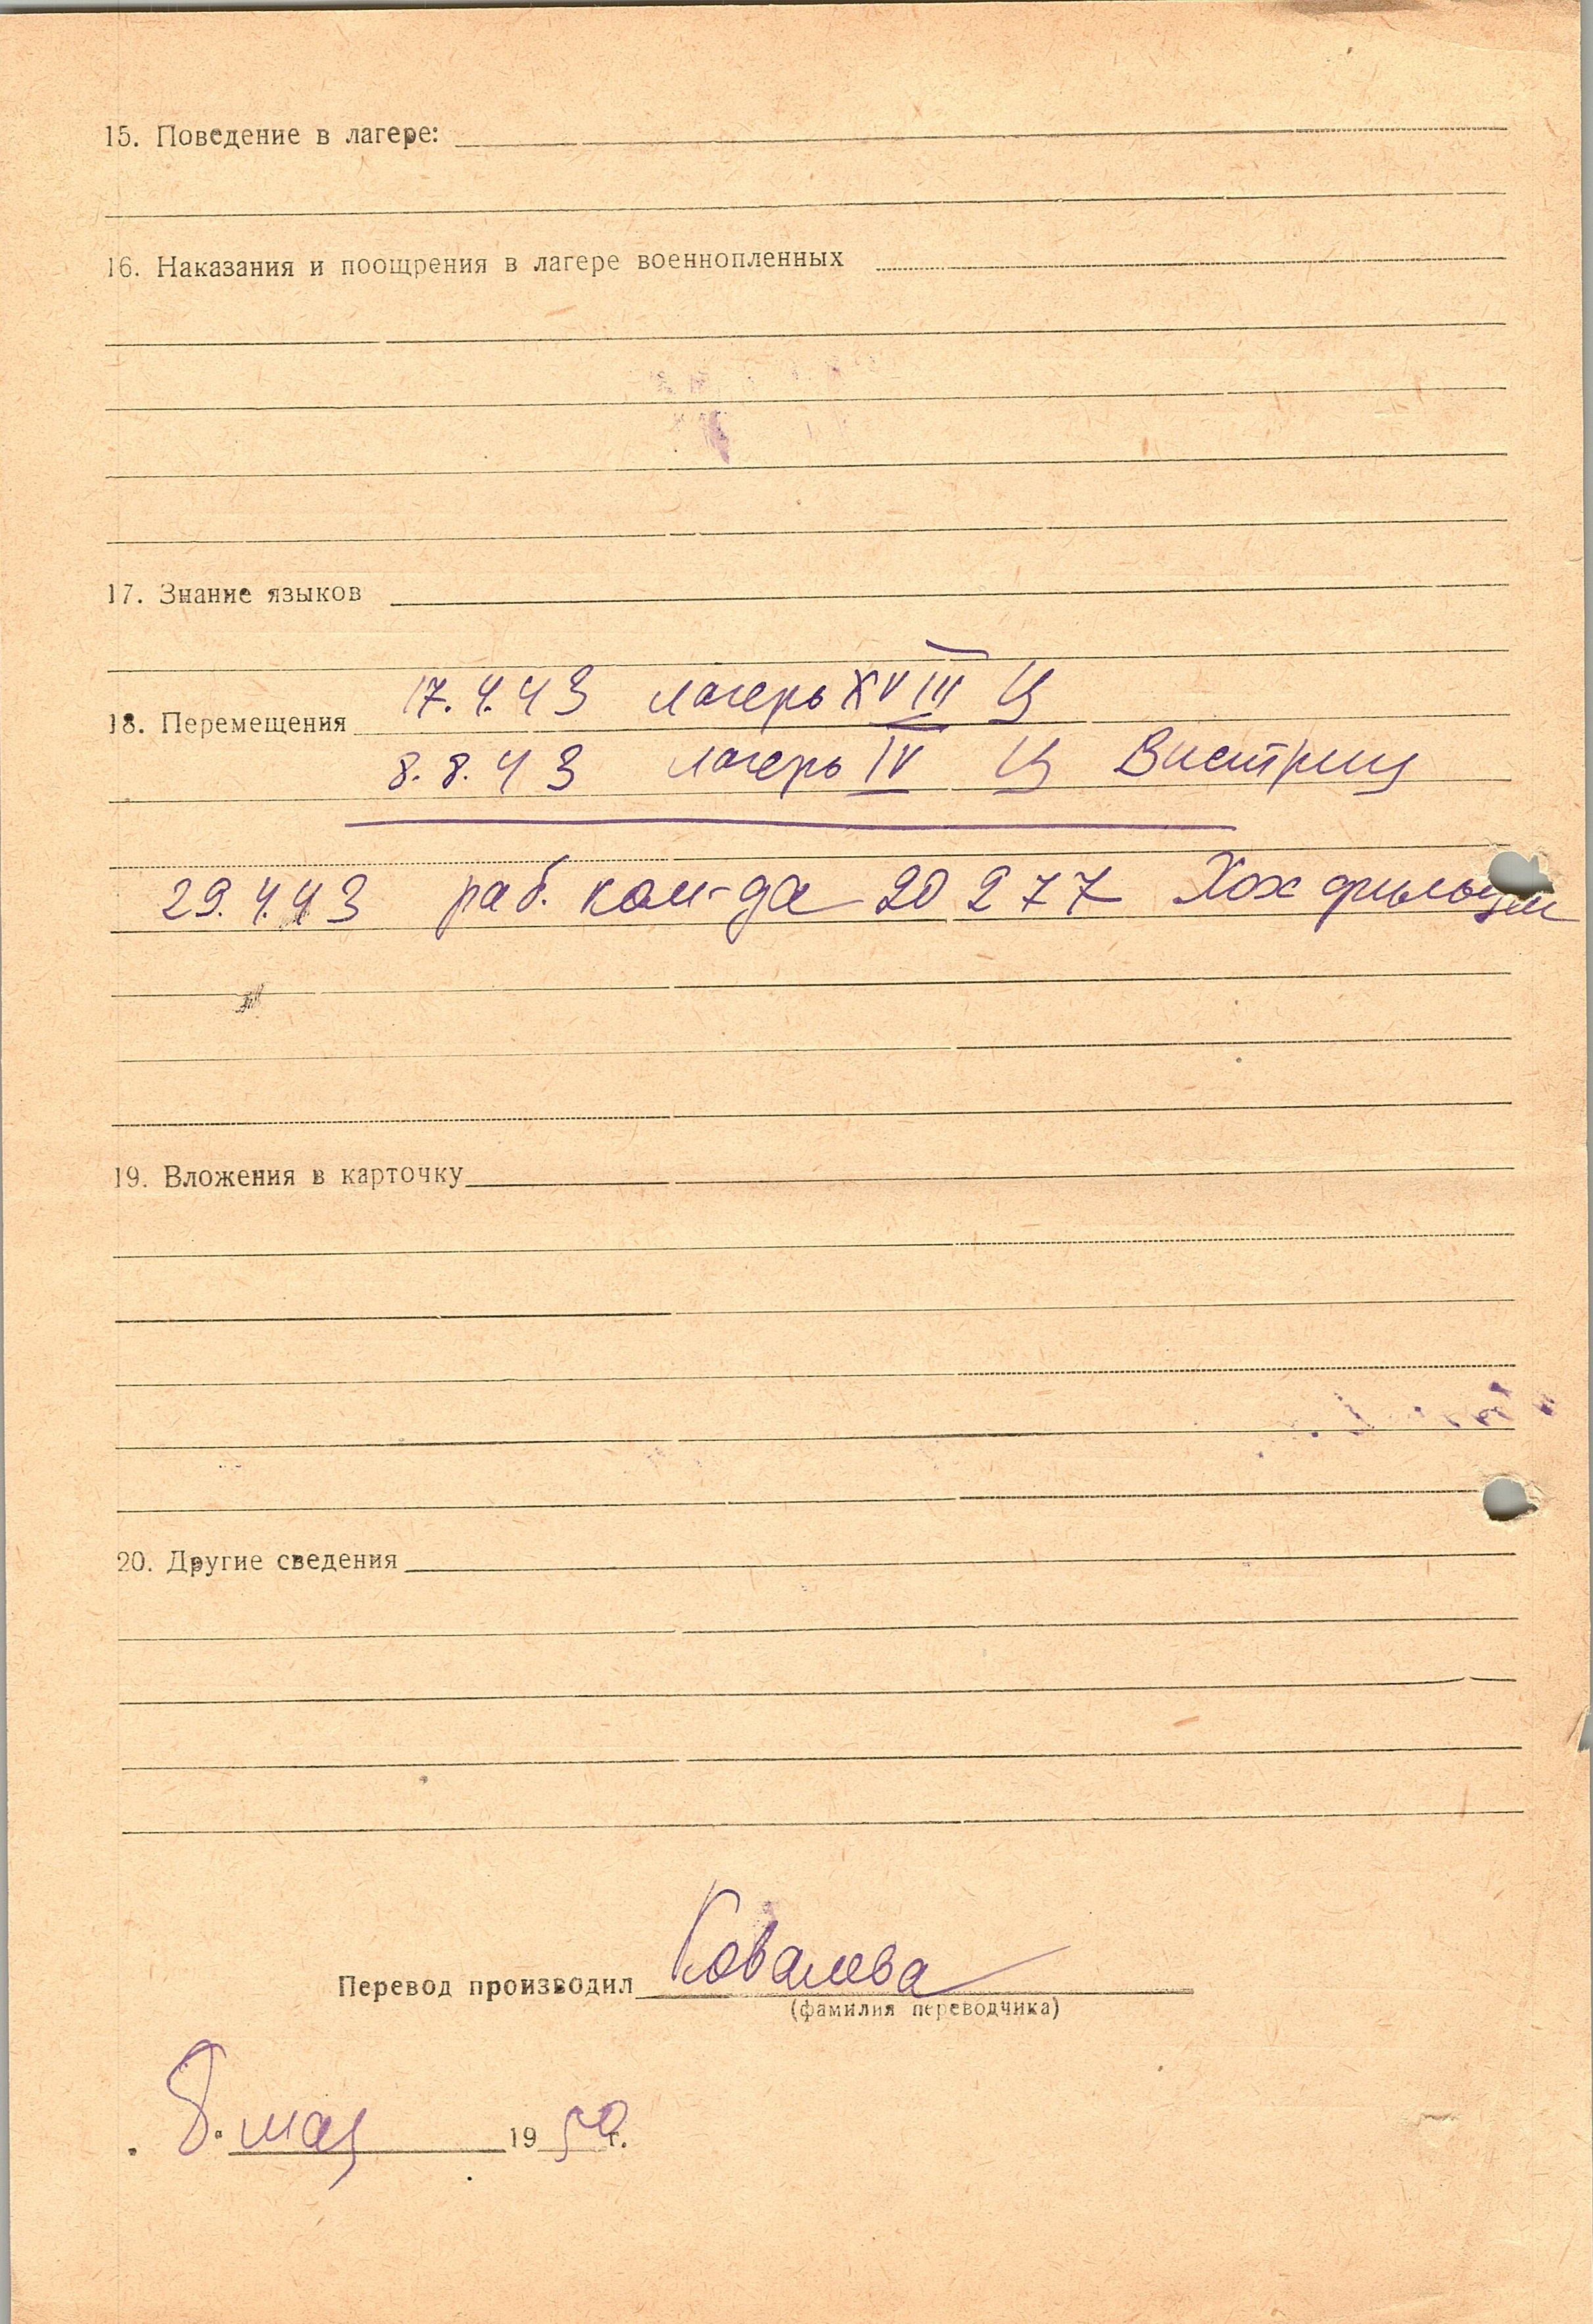 15. Поведение в лагере:
16. Наказания и поощрения в лагере военнопленных
17. Знание языков
17.4.43 лагерь XVIII Ц
18. Перемещения
8.8.43 лагерь IV Ц Вистриц
29.4.43 раб. ком-да 20277
19. Вложения в карточку
20. Другие сведения
Перевод производил Ковалева
(фамилия переводчика)
8. мая 1950 г.